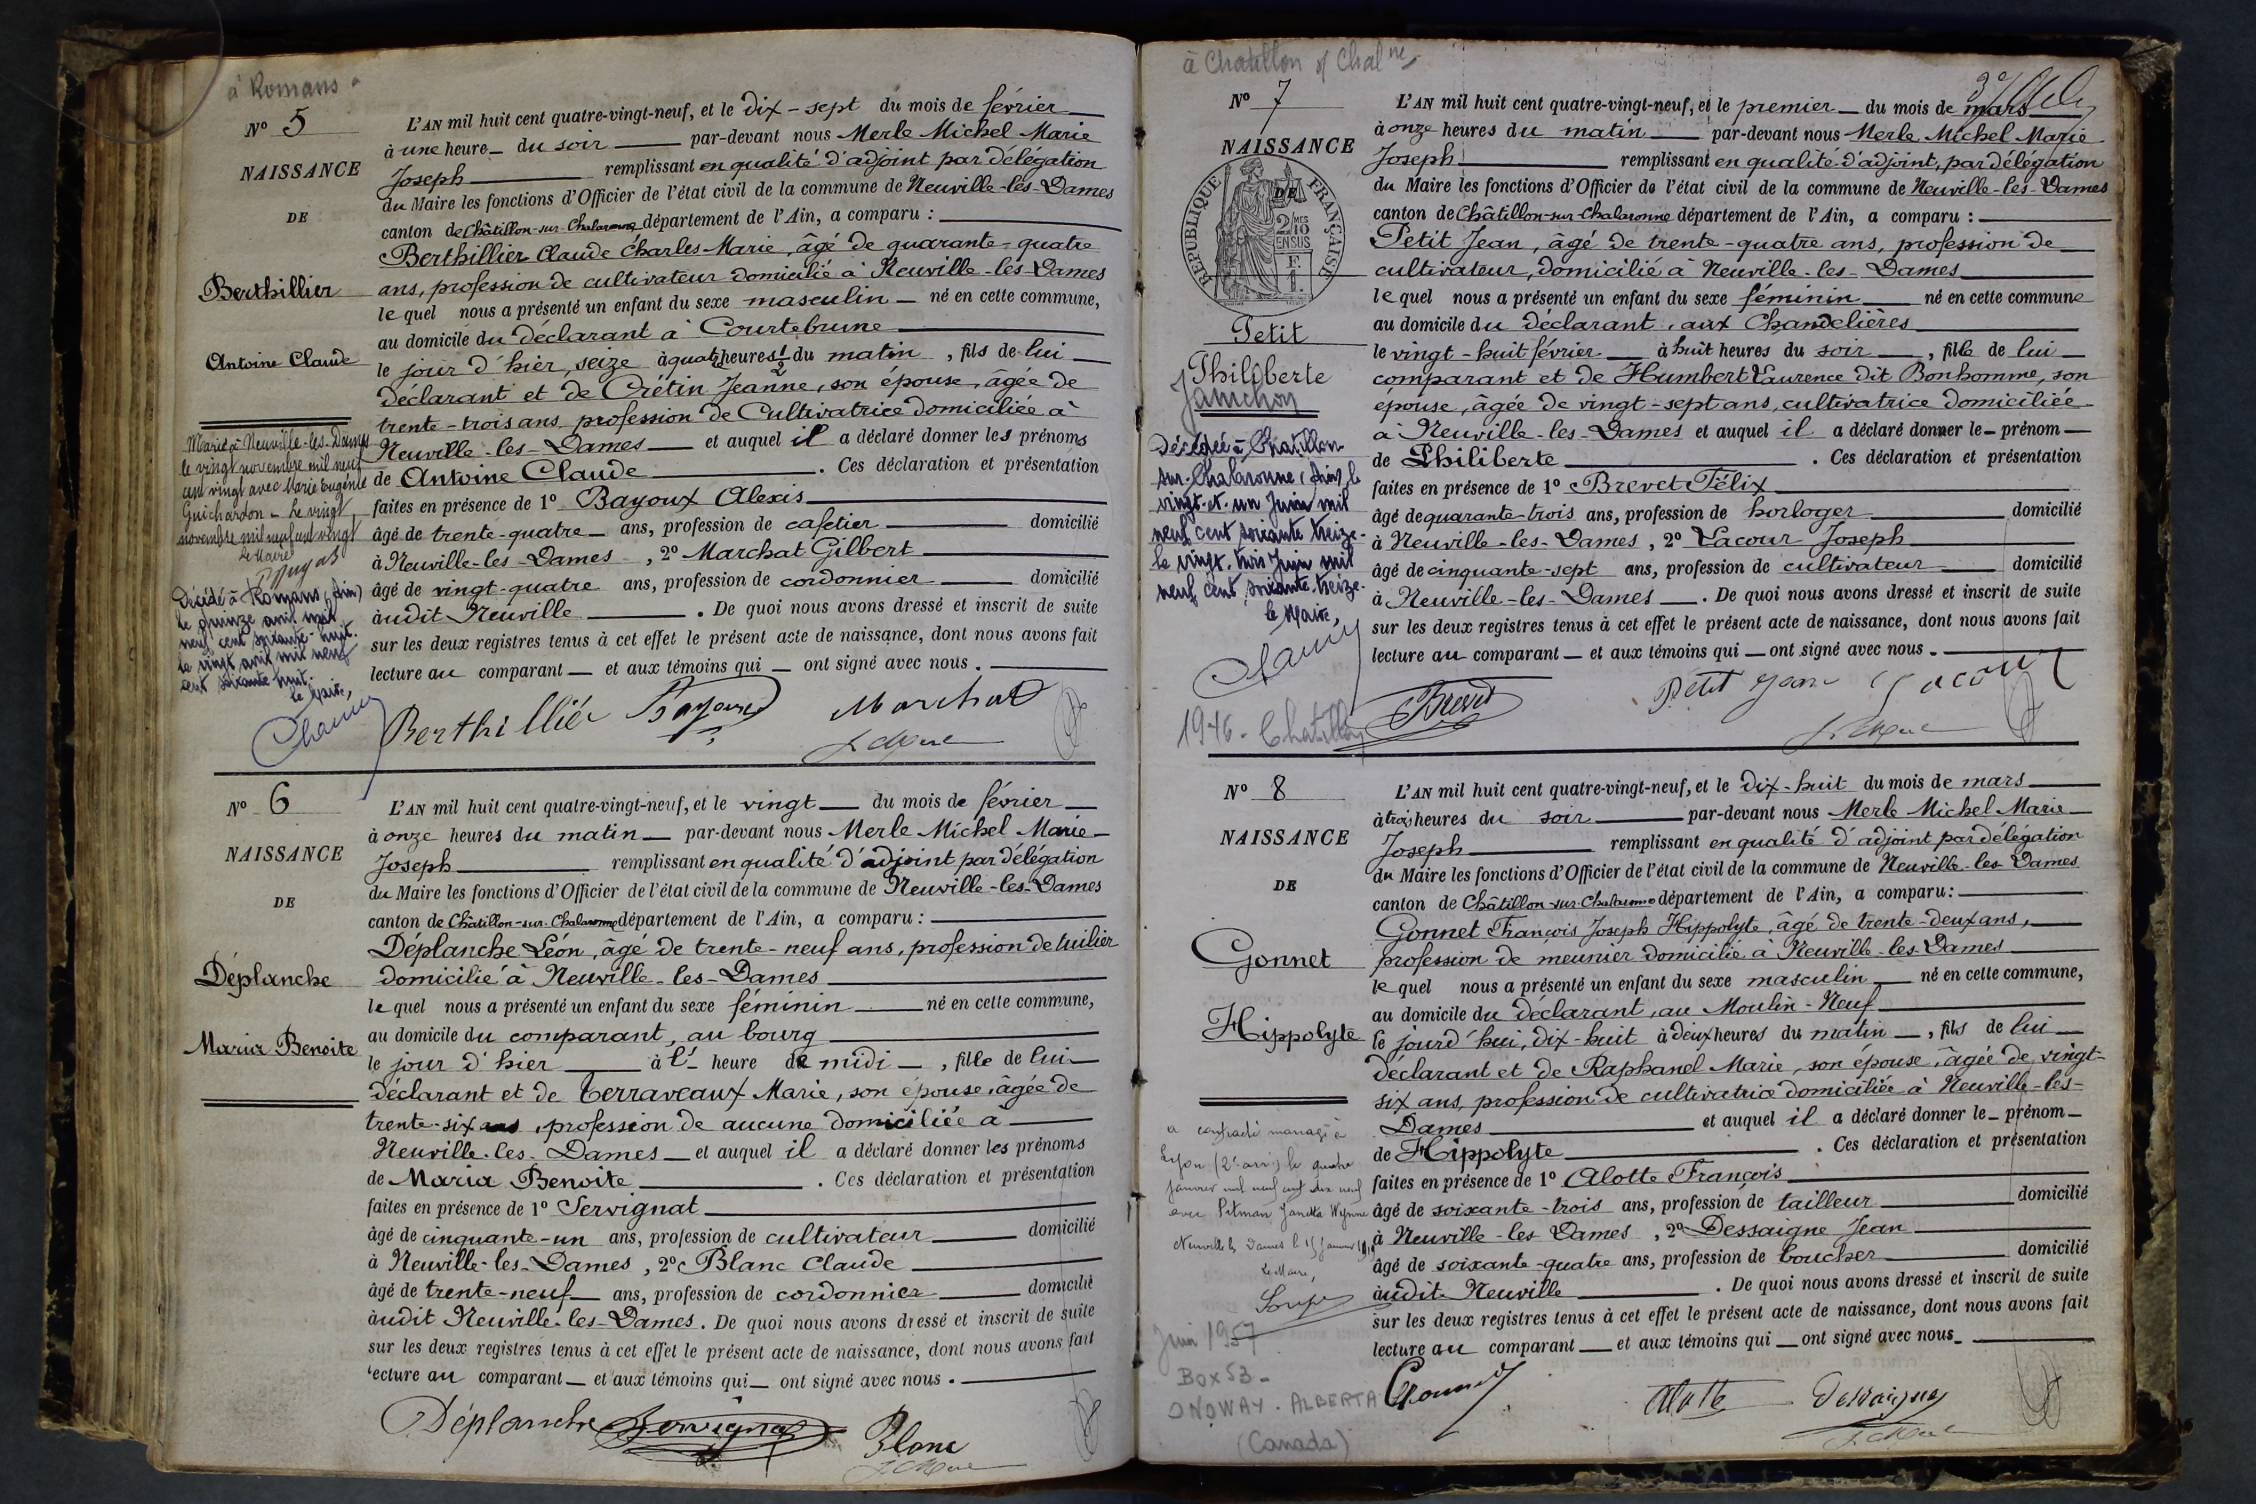 à Romans
N° 5
NAISSANCE
DE
Berthillier
Antoine Claude
Marié à Neuville-les-Dames
le vingt novembre mil neuf
cent vingt avec Marie Eugénie
Guichardon - Le vingt
novembre mil neuf cent vingt
Le Maire
Décédé à Romans (Ain)
le quinze avril mil
neuf cent soixante-huit.
Le vingt avril mil neuf
cent soixante huit.
Le Maire,
L'AN mil huit cent quatre-vingt-neuf, et le dix-sept du mois de février
à une heure du soir par-devant nous Merle Michel Marie
Joseph remplissant en qualité d'adjoint par délégation
du Maire les fonctions d'Officier de l'état civil de la commune de Neuville-les-Dames
canton de Châtillon-sur-Chalaronne département de l'Ain, a comparu :
Berthillier Claude Charles-Marie, âgé de quarante-quatre
ans, profession de cultivateur domicilié à Neuville-les-Dames
lequel nous a présenté un enfant du sexe masculin né en cette commune,
au domicile du déclarant à Courtebrune
le jour d'hier, seize à quatre heures 1/2 du matin, fils de lui
déclarant et de Crétin Jeanne, son épouse, âgée de
trente-trois ans profession de Cultivatrice domiciliée à
Neuville-les-Dames et auquel il a déclaré donner les prénoms
de Antoine Claude. Ces déclaration et présentation
faites en présence de 1° Bayoux Alexis
âgé de trente-quatre ans, profession de cafetier domicilié
à Neuville-les-Dames, 2° Marchat Gilbert
âgé de vingt-quatre ans, profession de cordonnier domicilié
audit Neuville. De quoi nous avons dressé et inscrit de suite
sur les deux registres tenus à cet effet le présent acte de naissance, dont nous avons fait
lecture au comparant et aux témoins qui ont signé avec nous.
Berthillier Bayoux Marchat
N° 6
NAISSANCE
DE
Déplanche
Maria Benoite
L'AN mil huit cent quatre-vingt-neuf, et le vingt du mois de février
à onze heures du matin par-devant nous Merle Michel Marie
Joseph remplissant en qualité d'adjoint par délégation
du Maire les fonctions d'Officier de l'état civil de la commune de Neuville-les-Dames
canton de Châtillon-sur-Chalaronne département de l'Ain, a comparu :
Déplanche Léon, âgé de trente-neuf ans, profession de tuilier
domicilié à Neuville-les-Dames
lequel nous a présenté un enfant du sexe féminin né en cette commune,
au domicile du comparant, au bourg
le jour d'hier à l' heure de midi, fille de lui
déclarant et de Terraveaux Marie, son épouse, âgée de
trente-six ans, profession de aucune domiciliée à
Neuville-les-Dames et auquel il a déclaré donner les prénoms
de Maria Benoite. Ces déclaration et présentation
faites en présence de 1° Servignat
âgé de cinquante-un ans, profession de cultivateur domicilié
à Neuville-les-Dames, 2° Blanc Claude
âgé de trente-neuf ans, profession de cordonnier domicilié
audit Neuville-les-Dames. De quoi nous avons dressé et inscrit de suite
sur les deux registres tenus à cet effet le présent acte de naissance, dont nous avons fait
lecture au comparant et aux témoins qui ont signé avec nous.
Déplanche Servignat Blanc
à Chatillon s/ Chalne
N° 7
NAISSANCE
DE
RÉPUBLIQUE FRANÇAISE
2/10 MES
EN SUS
F.
1.
Petit
Philiberte
Décédée à Chatillon
sur-Chalaronne (Ain) le
vingt-et-un Juin mil
neuf cent soixante treize.
le vingt-trois Juin mil
neuf cent soixante-treize.
le Maire,
1946 - Chatillon
L'AN mil huit cent quatre-vingt-neuf, et le premier du mois de mars
à onze heures du matin par-devant nous Merle Michel Marie
Joseph remplissant en qualité d'adjoint, par délégation
du Maire les fonctions d'Officier de l'état civil de la commune de Neuville-les-Dames
canton de Châtillon-sur-Chalaronne département de l'Ain, a comparu :
Petit Jean, âgé de trente-quatre ans, profession de
cultivateur, domicilié à Neuville-les-Dames
lequel nous a présenté un enfant du sexe féminin né en cette commune
au domicile du déclarant, aux Chandelières
le vingt-huit février à huit heures du soir, fille de lui
comparant et de Humbert Laurence dit Bonhomme, son
épouse, âgée de vingt-sept ans, cultivatrice domiciliée
à Neuville-les-Dames et auquel il a déclaré donner le prénom
de Philiberte. Ces déclaration et présentation
faites en présence de 1° Brevet Félix
âgé de quarante-trois ans, profession de horloger domicilié
à Neuville-les-Dames, 2° Lacour Joseph
âgé de cinquante-sept ans, profession de cultivateur domicilié
à Neuville-les-Dames. De quoi nous avons dressé et inscrit de suite
sur les deux registres tenus à cet effet le présent acte de naissance, dont nous avons fait
lecture au comparant et aux témoins qui ont signé avec nous.
Brevet Petit Jean Lacour
N° 8
NAISSANCE
DE
Gonnet
Hippolyte
a contracté mariage à
Lyon (2e arr) le quatre
janvier mil neuf cent dix neuf
avec Pitman Janetta Wynne
Neuville les Dames le 15 Janvier 1919
Le Maire,
Juin 1957
Box 53 -
ONOWAY. ALBERTA
(Canada)
L'AN mil huit cent quatre-vingt-neuf, et le dix-huit du mois de mars
à trois heures du soir par-devant nous Merle Michel Marie
Joseph remplissant en qualité d'adjoint par délégation
du Maire les fonctions d'Officier de l'état civil de la commune de Neuville-les-Dames
canton de Châtillon-sur-Chalaronne département de l'Ain, a comparu :
Gonnet François Joseph Hippolyte, âgé de trente-deux ans,
profession de meunier domicilié à Neuville-les-Dames
lequel nous a présenté un enfant du sexe masculin né en cette commune,
au domicile du déclarant, au Moulin-Neuf
le jourd'hui, dix-huit à deux heures du matin, fils de lui
déclarant et de Raphanel Marie, son épouse, âgée de vingt-
six ans, profession de cultivatrice domiciliée à Neuville-les-
Dames et auquel il a déclaré donner le prénom
de Hippolyte. Ces déclaration et présentation
faites en présence de 1° Alotte François
âgé de soixante-trois ans, profession de tailleur domicilié
à Neuville-les Dames, 2° Dessaigne Jean
âgé de soixante-quatre ans, profession de boucher domicilié
audit Neuville. De quoi nous avons dressé et inscrit de suite
sur les deux registres tenus à cet effet le présent acte de naissance, dont nous avons fait
lecture au comparant et aux témoins qui ont signé avec nous.
Gonnet Alotte Dessaigne